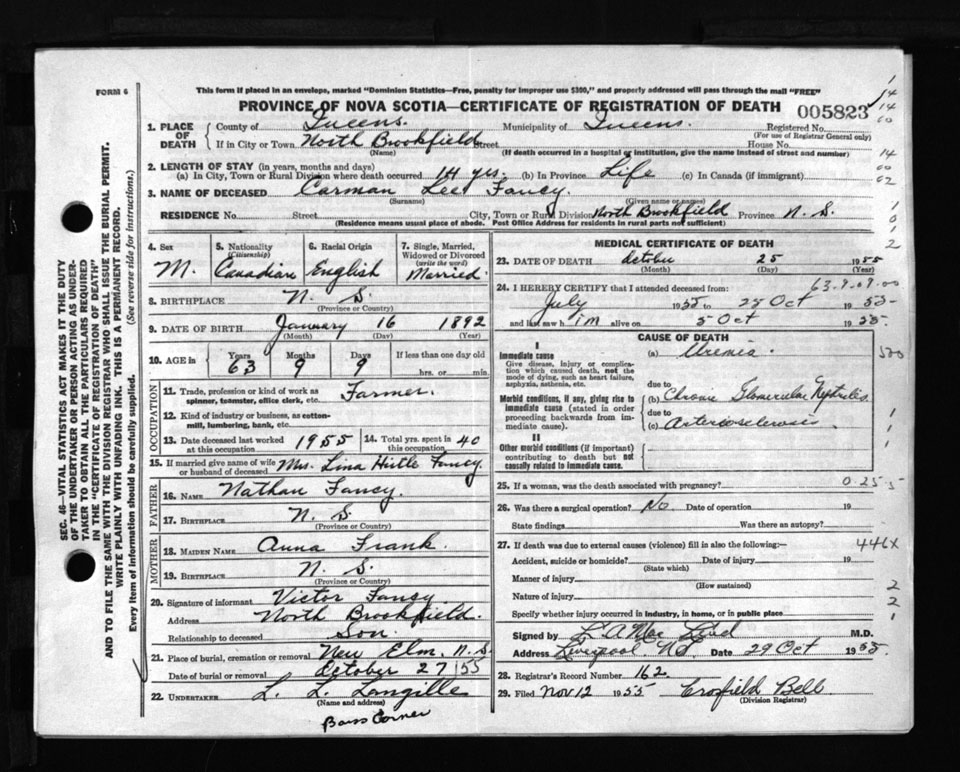 FORM 6
This form if placed in an envelope, marked "Dominion Statistics—Free, penalty for improper use $300," and properly addressed will pass through the mail "FREE"
PROVINCE OF NOVA SCOTIA—CERTIFICATE OF REGISTRATION OF DEATH 005823
1. PLACE OF DEATH County of Queens. Municipality of Queens. Registered No.
(For use of Registrar General only)
If in City or Town North Brookfield Street House No.
(Name) (If death occurred in a hospital or institution, give the name instead of street and number)
2. LENGTH OF STAY (in years, months and days)
(a) In City, Town or Rural Division where death occurred 14 yrs. (b) In Province Life (c) In Canada (if immigrant)
3. NAME OF DECEASED Carman Lee Fancy.
(Surname) (Given name or names)
RESIDENCE No. Street City, Town or Rural Division North Brookfield Province N. S.
(Residence means usual place of abode. Post Office Address for residents in rural parts not sufficient)
4. Sex M. 5. Nationality (Citizenship) Canadian 6. Racial Origin English 7. Single, Married, Widowed or Divorced (write the word) Married.
8. BIRTHPLACE N. S.
(Province or Country)
9. DATE OF BIRTH January 16 1892
(Month) (Day) (Year)
10. AGE in Years 63 Months 9 Days 9 If less than one day old hrs. or min.
OCCUPATION
11. Trade, profession or kind of work as spinner, teamster, office clerk, etc. Farmer.
12. Kind of industry or business, as cotton-mill, lumbering, bank, etc.
13. Date deceased last worked at this occupation 1955 14. Total yrs. spent in 40
15. If married give name of wife or husband of deceased Mrs. Lina Hirtle Fancy.
FATHER
16. NAME Nathan Fancy.
17. BIRTHPLACE N. S
(Province or Country)
MOTHER
18. MAIDEN NAME Anna Frank.
19. BIRTHPLACE N. S.
(Province or Country)
20. Signature of informant Victor Fancy
Address North Brookfield.
Relationship to deceased Son.
21. Place of burial, cremation or removal New Elm, N. S.
Date of burial or removal October 27/55
22. UNDERTAKER L. L. Langille
(Name and address)
Barss Corner
MEDICAL CERTIFICATE OF DEATH
23. DATE OF DEATH October 25 1955
(Month) (Day) (Year)
63.9.09.00
24. I HEREBY CERTIFY that I attended deceased from:
July 1955 to 25 Oct 1955
and last saw him alive on 5 Oct 1955
CAUSE OF DEATH
I
Immediate cause
Give disease, injury or complication which caused death, not the mode of dying, such as heart failure, asphyxia, asthenia, etc.
(a) Uremia.
due to
Morbid conditions, if any, giving rise to immediate cause (stated in order proceeding backwards from immediate cause).
(b) Chronic Glomerular Nephritis
due to
(c) Arteriosclerosis
II
Other morbid conditions (if important) contributing to death but not causally related to immediate cause.
25. If a woman, was the death associated with pregnancy? 0.25.5
26. Was there a surgical operation? No Date of operation 19
State findings Was there an autopsy?
27. If death was due to external causes (violence) fill in also the following:— 446X
Accident, suicide or homicide? Date of injury 19
(State which)
Manner of injury
(How sustained)
Nature of injury
Specify whether injury occurred in industry, in home, or in public place
Signed by L A MacLeod M.D.
Address Liverpool NS Date 29 Oct 1955
28. Registrar's Record Number 162
29. Filed Nov 12 1955 Crofield Bell
(Division Registrar)
SEC. 46—VITAL STATISTICS ACT MAKES IT THE DUTY
OF THE UNDERTAKER OR PERSON ACTING AS UNDERTAKER
TO OBTAIN ALL THE PARTICULARS REQUIRED
IN THE "CERTIFICATE OF REGISTRATION OF DEATH"
AND TO FILE THE SAME WITH THE DIVISION REGISTRAR WHO SHALL ISSUE THE BURIAL PERMIT.
WRITE PLAINLY WITH UNFADING INK. THIS IS A PERMANENT RECORD.
Every item of information should be carefully supplied. (See reverse side for instructions.)